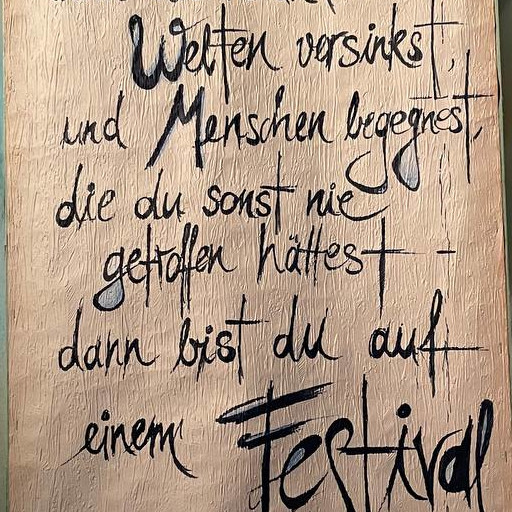 Welten versinkst,
und Menschen begegnest,
die du sonst nie
getroffen hättest -
dann bist du auf
einem Festival